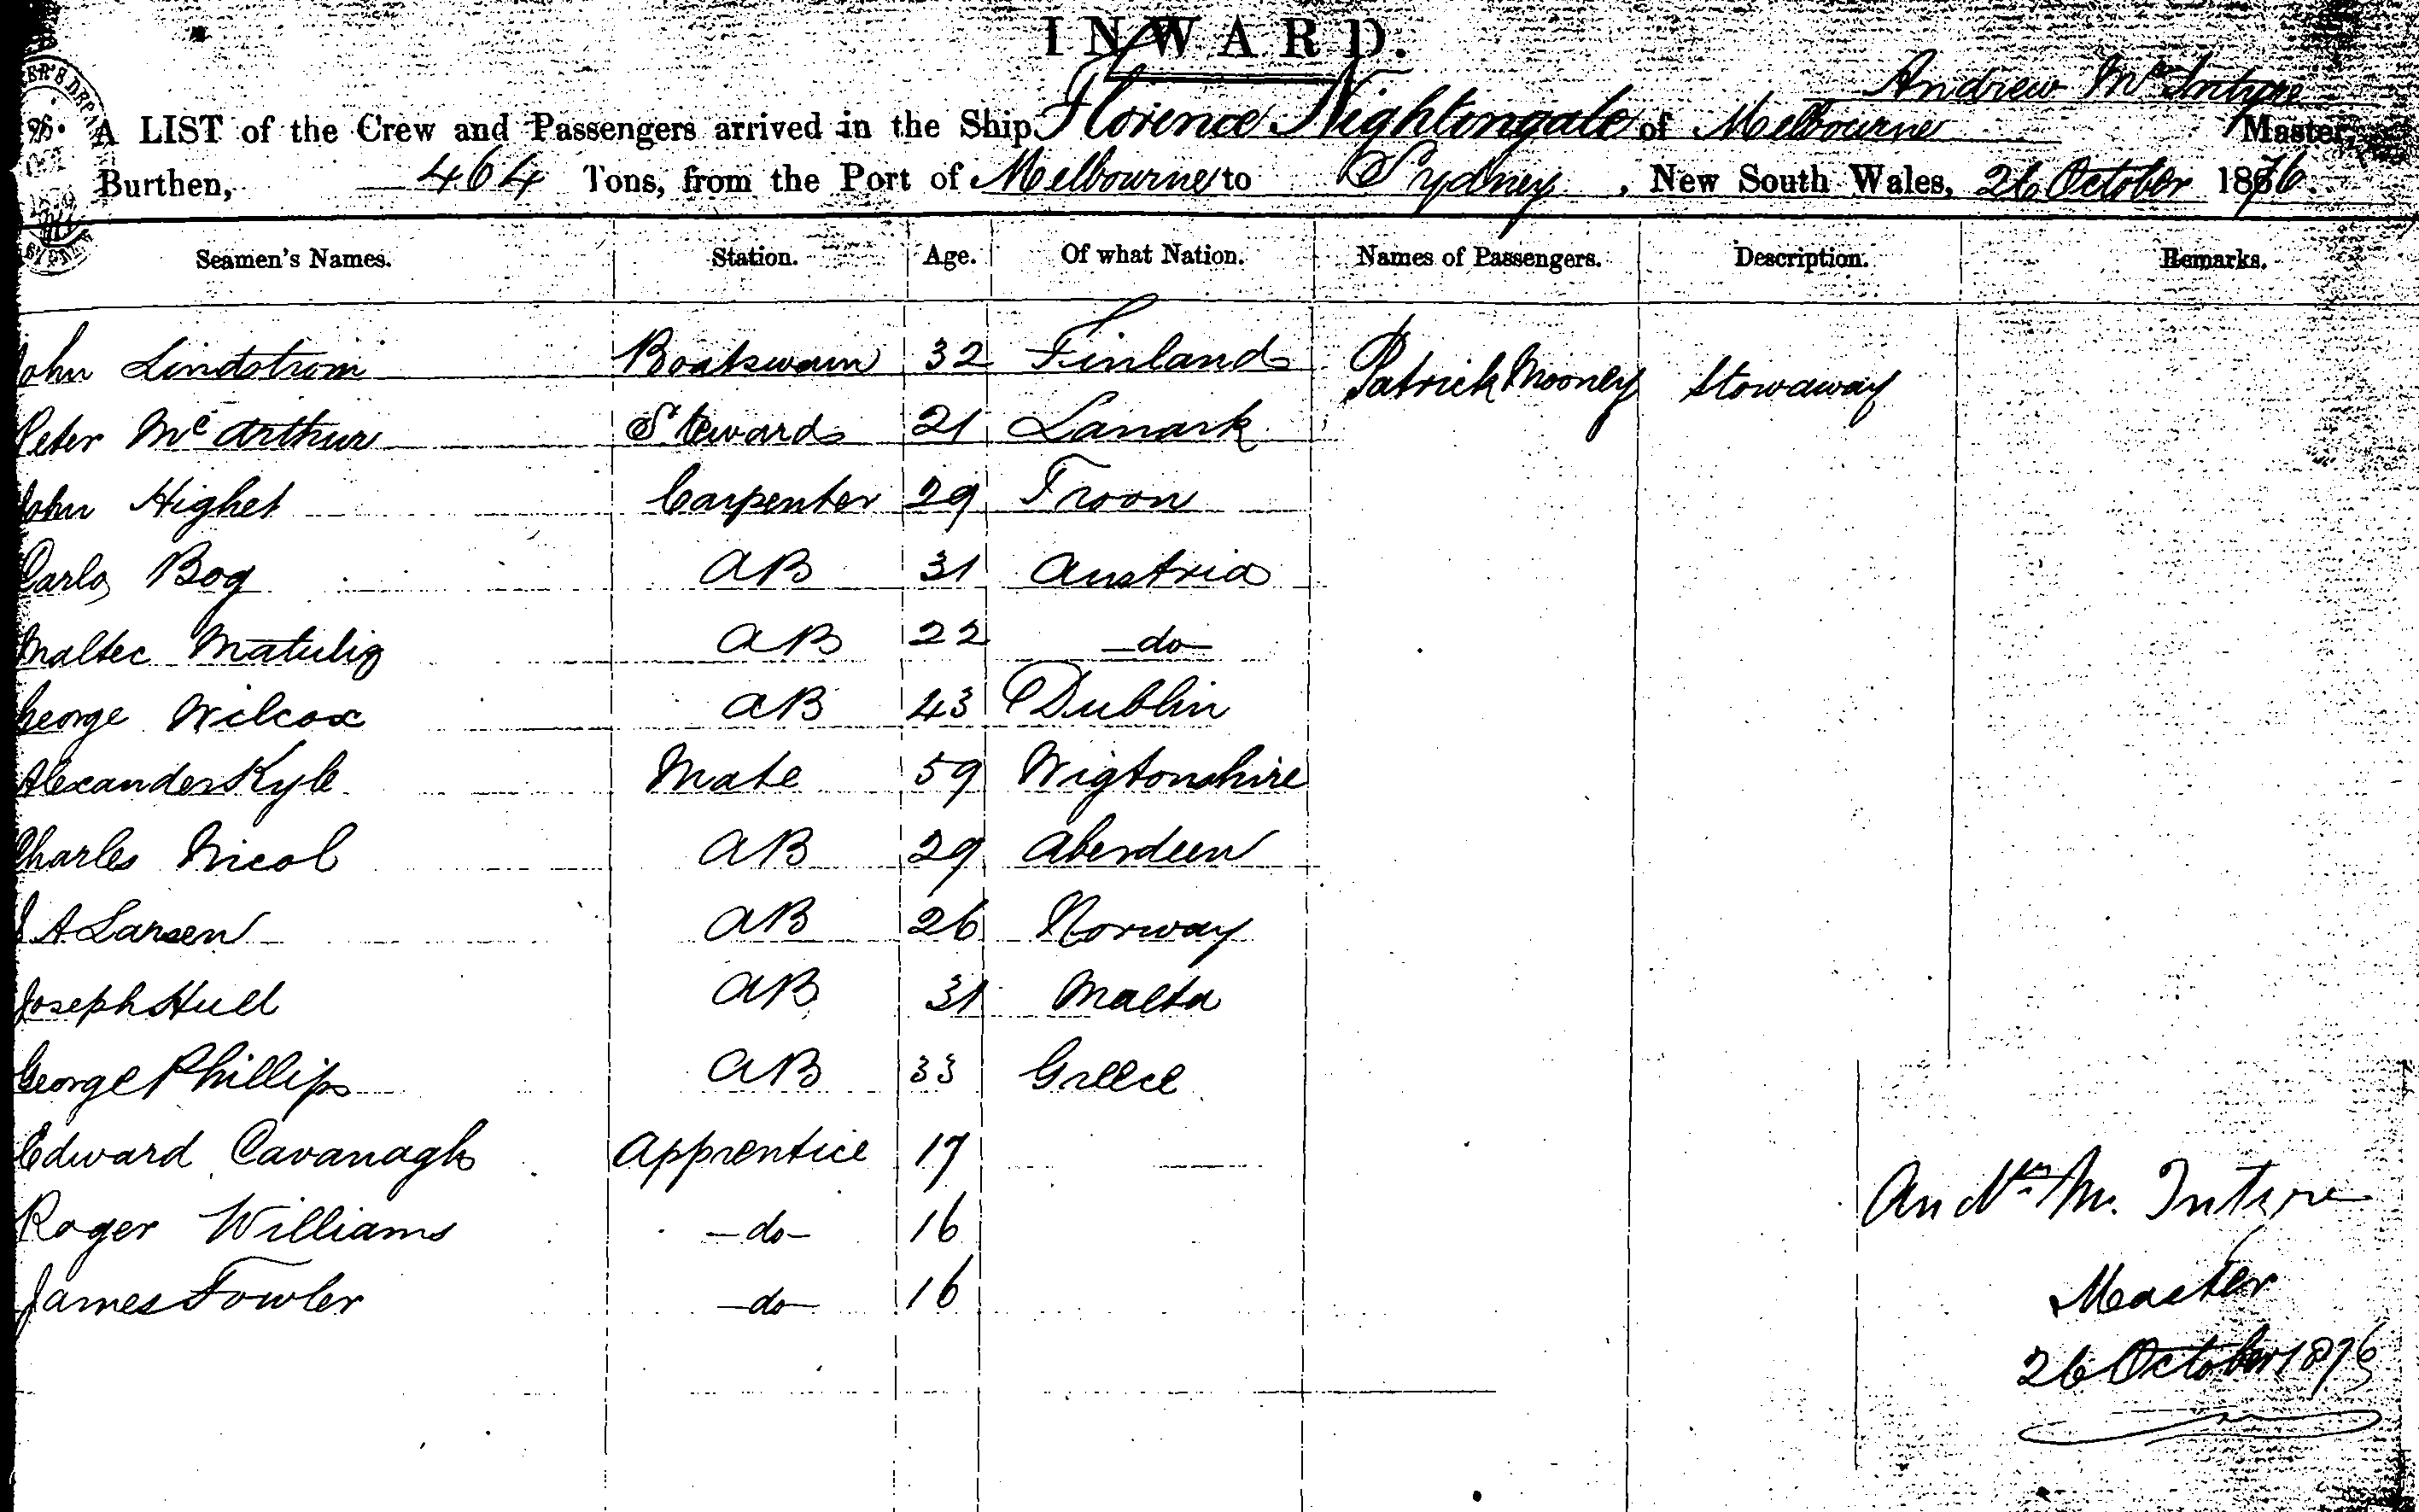 INWARD.
Andrew McIntyre
A LIST of the Crew and Passengers arrived in the Ship Florence Nightingale of Melbourne Master,
Burthen, 464 Tons, from the Port of Melbourne to Sydney, New South Wales, 26 October 1876.
Seamen's Names. Station. Age. Of what Nation. Names of Passengers. Description. Remarks.
John Lindstrom Boatswain 32 Finland Patrick Mooney Stowaway
Peter McArthur Steward 21 Lanark
John Highet Carpenter 29 Troon
Carlo Bog AB 31 Austria
Maltec Matulig AB 22 -do-
George Wilcox AB 43 Dublin
Alexander Kyle Mate 59 Wigtonshire
Charles Nicol AB 29 Aberdeen
J A Larsen AB 26 Norway
Joseph Hull AB 31 Malta
George Phillips AB 33 Greece
Edward Cavanagh Apprentice 17
Roger Williams -do- 16
James Fowler -do- 16
Andw Mc Intyre
Master
26 October 1876